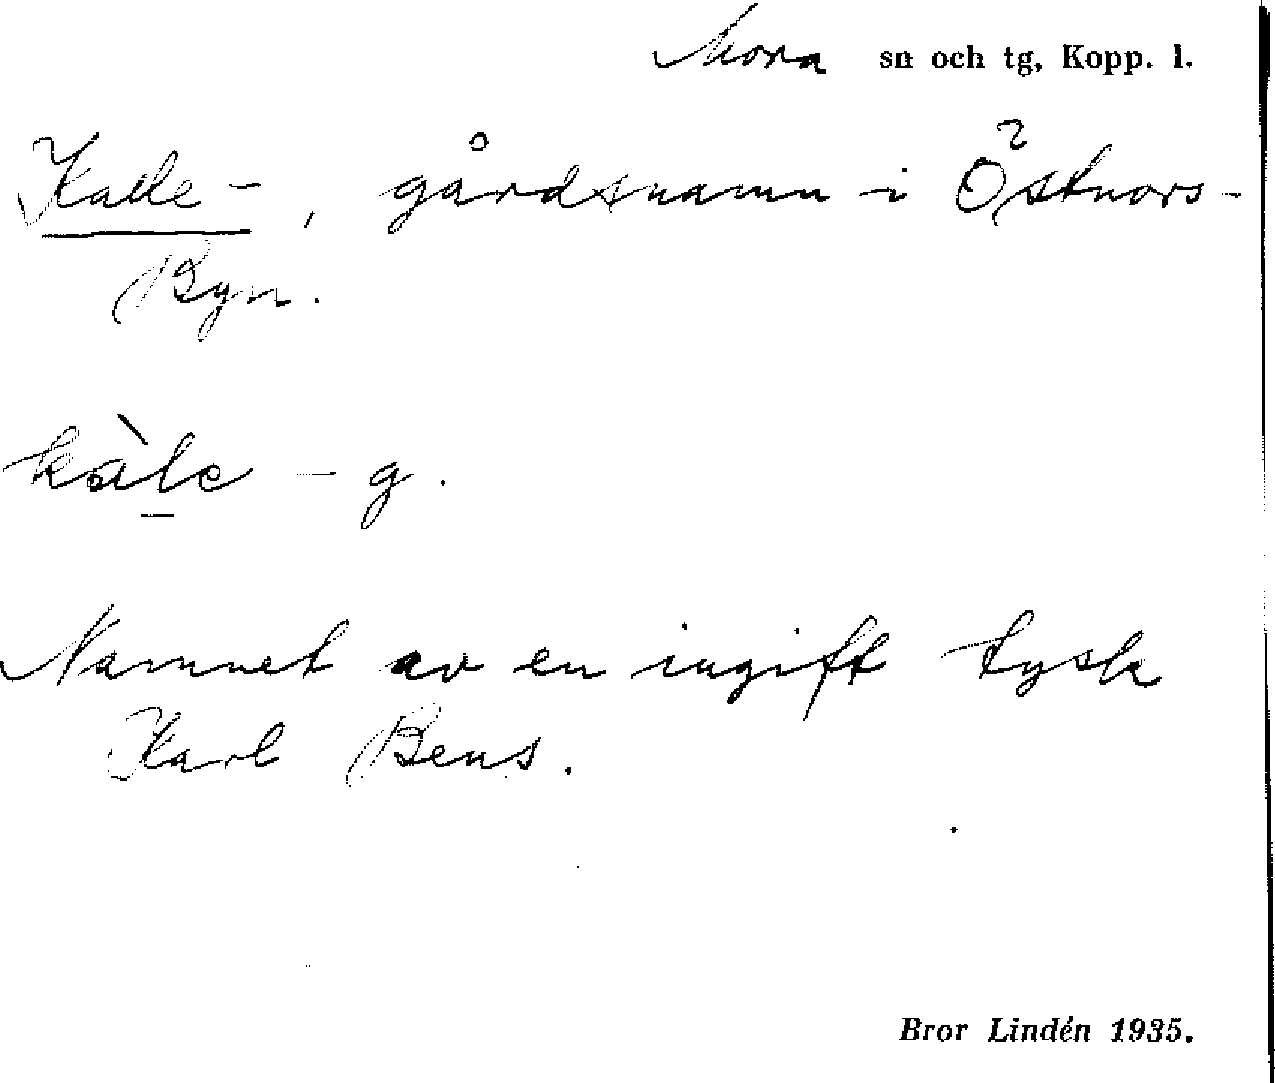 Mora sn och tg, Kopp. l.
Kalle-, gårdsnamn i Östnors-
Byn.
kàl̲e - g.
Namnet av en ingift tysk
Karl Bens.
Bror Lindén 1935.